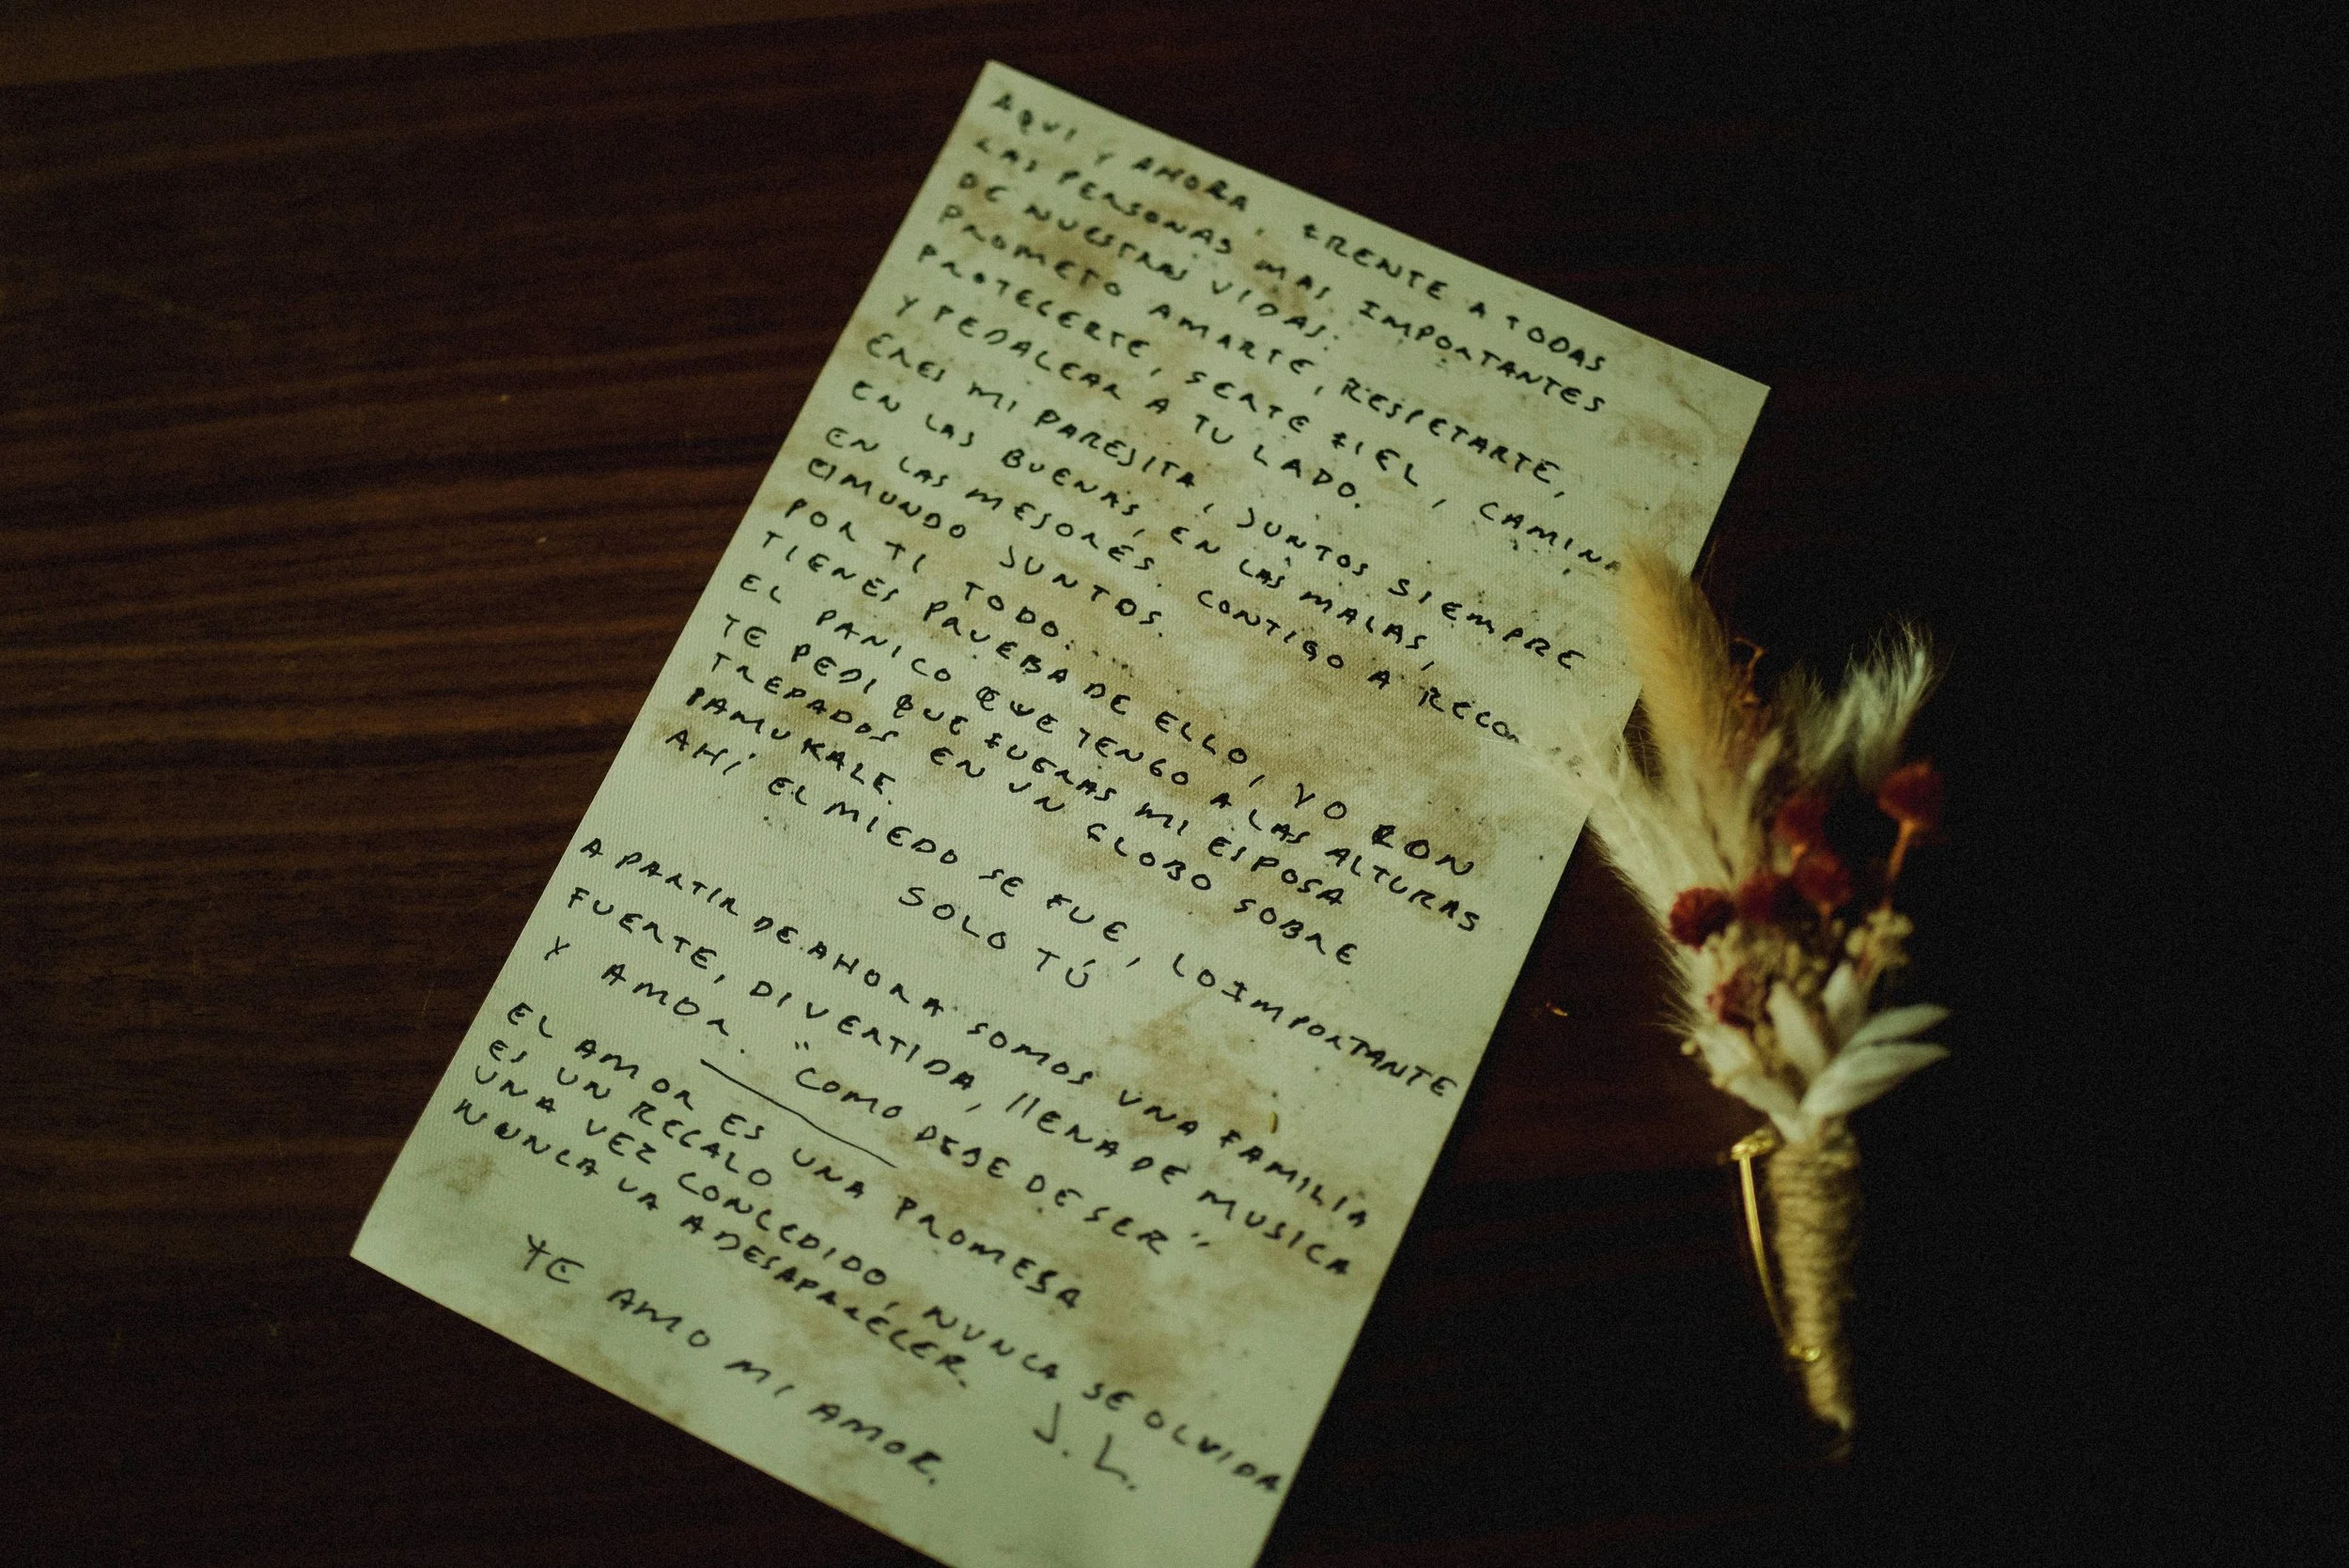 AQUI Y AHORA, FRENTE A TODAS
LAS PERSONAS MAS IMPORTANTES
DE NUESTRAS VIDAS.
PROMETO AMARTE, RESPETARTE,
PROTEGERTE, SERTE FIEL, CAMINA
Y PEDALEAR A TU LADO.
ERES MI PAREJITA, JUNTOS SIEMPRE
EN LAS BUENAS, EN LAS MALAS,
EN LAS MEJORES. CONTIGO A RECO
El MUNDO JUNTOS.
POR TI TODO...
TIENES PRUEBA DE ELLO, YO CON
EL PANICO QUE TENGO A LAS ALTURAS
TE PEDI QUE FUERAS MI ESPOSA
TREPADOS EN UN GLOBO SOBRE
PAMUKALE.
AHÍ EL MIEDO SE FUE, LO IMPORTANTE
SOLO TÚ
A PARTIR DE AHORA SOMOS UNA FAMILIA
FUERTE, DIVERTIDA, llENA DE MUSICA
Y AMOR. "COMO DEBE DE SER"
EL AMOR ES UNA PROMESA
ES UN REGALO
UNA VEZ CONCEDIDO, NUNCA SE OLVIDA
NUNCA VA A DESAPARECER.
TE AMO MI AMOR. J. L.